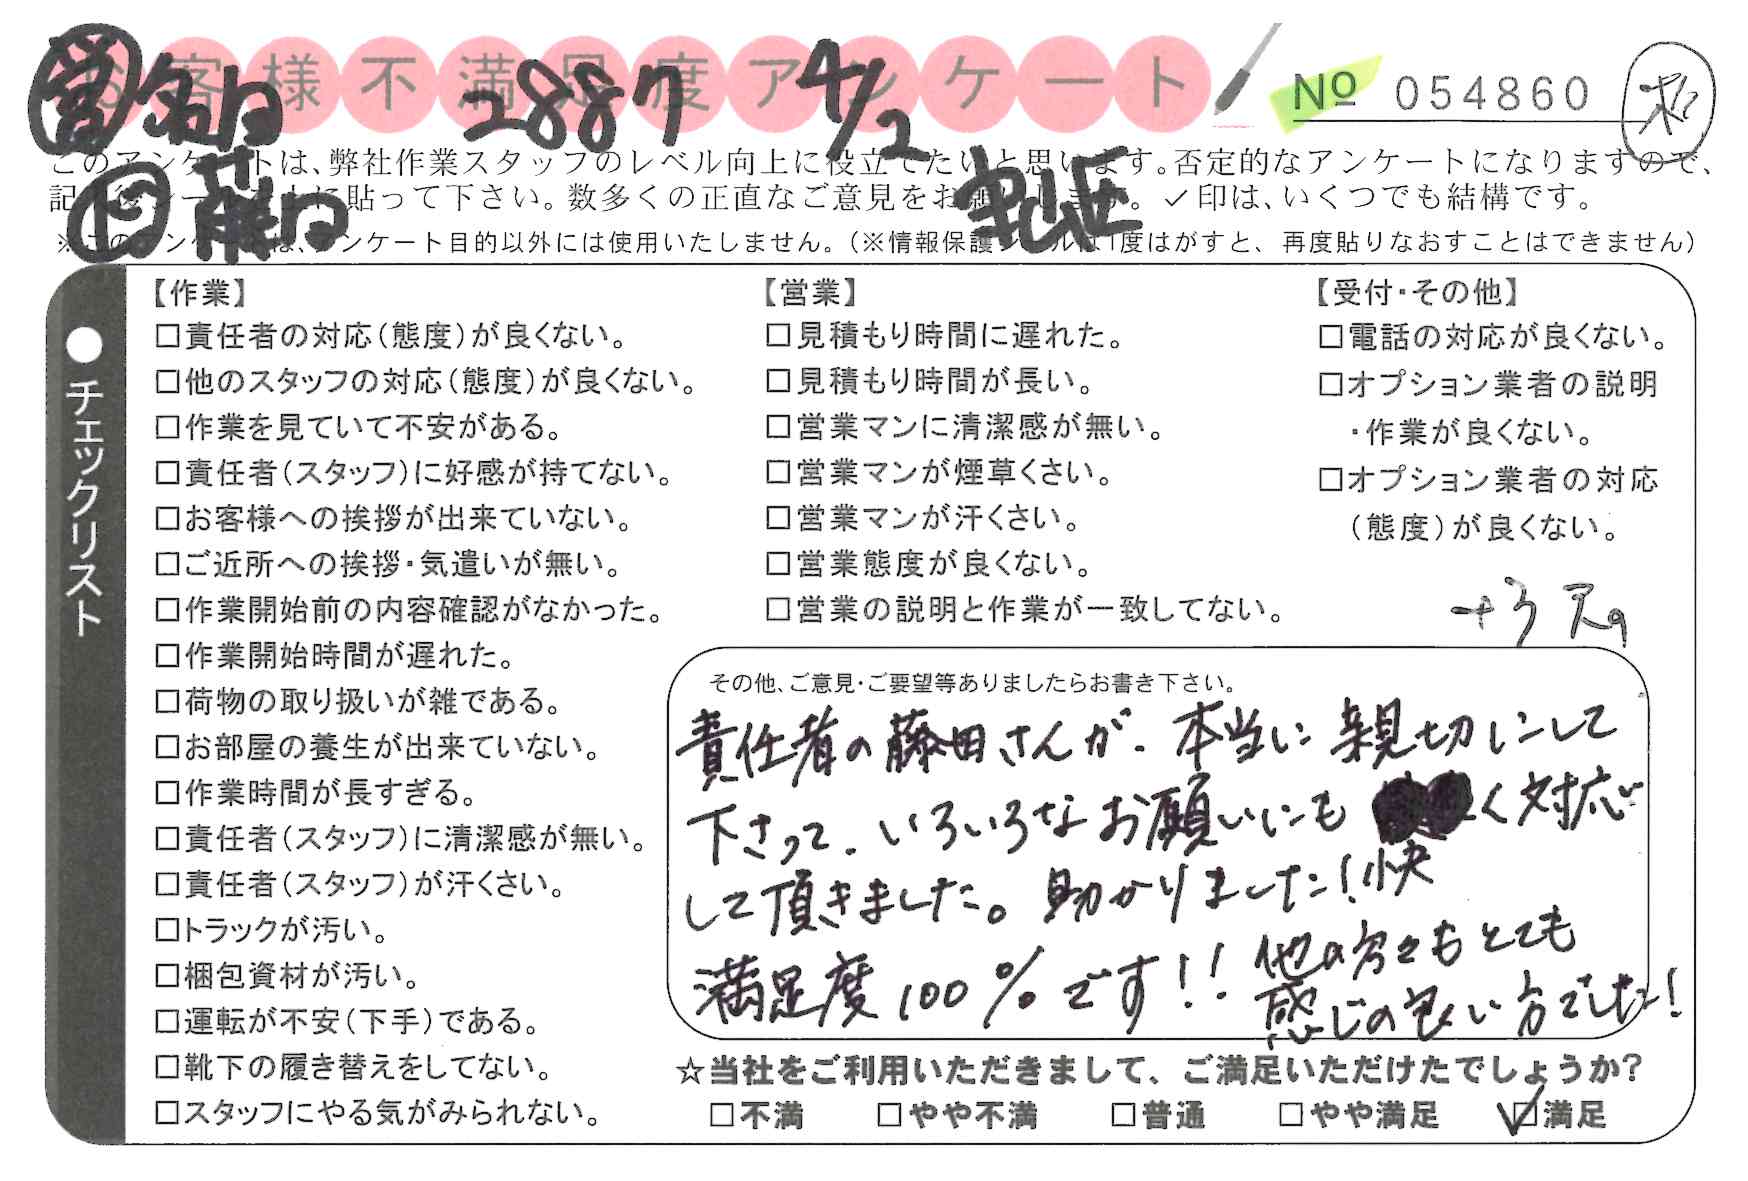 お客様不満足度アンケート
2887 4/2
No 054860
このアンケートは、弊社作業スタッフのレベル向上に役立てたいと思います。否定的なアンケートになりますので、
貼って下さい。数多くの正直なご意見をお願いします。✓印は、いくつでも結構です。
※このアンケートは、アンケート目的以外には使用いたしません。（※情報保護シールは1度はがすと、再度貼りなおすことはできません）
●チェックリスト
【作業】
□責任者の対応（態度）が良くない。
□他のスタッフの対応（態度）が良くない。
□作業を見ていて不安がある。
□責任者（スタッフ）に好感が持てない。
□お客様への挨拶が出来ていない。
□ご近所への挨拶・気遣いが無い。
□作業開始前の内容確認がなかった。
□作業開始時間が遅れた。
□荷物の取り扱いが雑である。
□お部屋の養生が出来ていない。
□作業時間が長すぎる。
□責任者（スタッフ）に清潔感が無い。
□責任者（スタッフ）が汗くさい。
□トラックが汚い。
□梱包資材が汚い。
□運転が不安（下手）である。
□靴下の履き替えをしてない。
□スタッフにやる気がみられない。
【営業】
□見積もり時間に遅れた。
□見積もり時間が長い。
□営業マンに清潔感が無い。
□営業マンが煙草くさい。
□営業マンが汗くさい。
□営業態度が良くない。
□営業の説明と作業が一致してない。
【受付・その他】
□電話の対応が良くない。
□オプション業者の説明
・作業が良くない。
□オプション業者の対応
（態度）が良くない。
その他、ご意見・ご要望等ありましたらお書き下さい。
責任者の藤田さんが、本当に親切にして
下さって、いろいろなお願いにも く対応
して頂きました。助かりました！快
満足度100％です！！他の方々もとても
感じの良い方でした！
☆当社をご利用いただきまして、ご満足いただけたでしょうか?
□不満 □やや不満 □普通 □やや満足 ☑満足